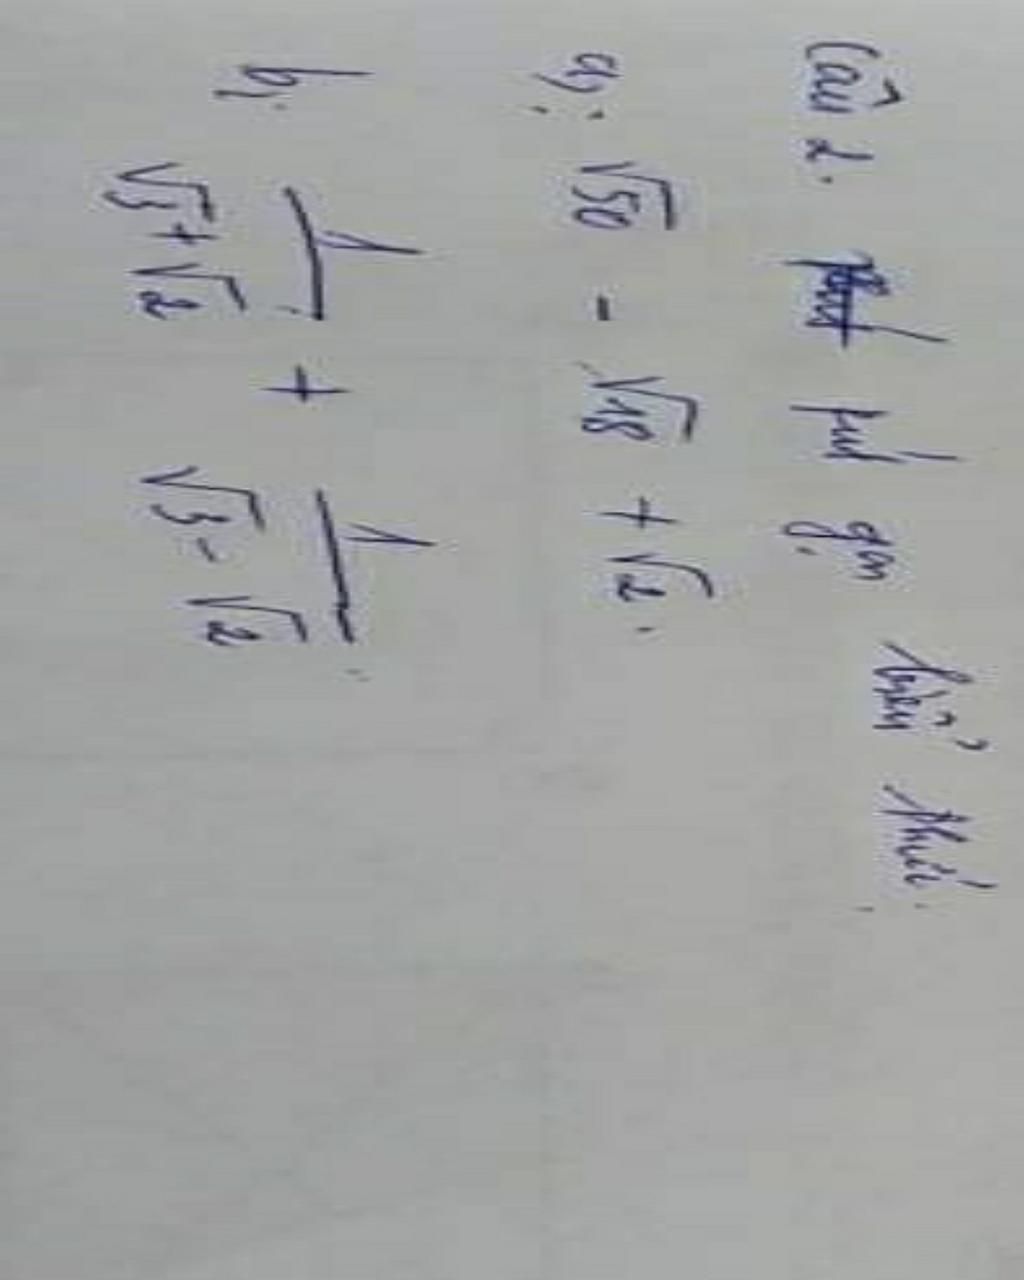 Câu 2. rút gọn biểu thức.
a, √50 - √18 + √2.
b, 1/(√3+√2) + 1/(√3-√2).